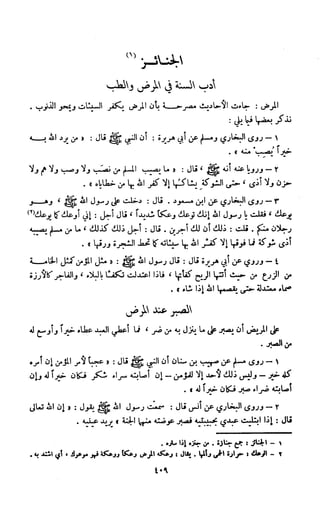 الجنائز (١)
أدب السنة في المرض والطب
المرض : جاءت الأحاديث مصرحة بأن المرض يكفر السيئات ويمحو الذنوب .
نذكر بعضها فيما يلي :
١ – روى البخاري ومسلم عن أبي هريرة : أن النبي ﷺ قال : « من يرد الله به
خيراً يُصب منه » .
٢ – ورويا عنه أنه ﷺ ، قال : « ما يصيب المسلم من نصب ولا وصب ولا هم ولا
حزن ولا أذى ، حتى الشوكة يشاكها إلا كفر الله بها من خطاياه » .
٣ – وروى البخاري عن ابن مسعود . قال : دخلت على رسول الله ﷺ ، وهو
يوعك ، فقلت يا رسول الله إنك توعك وعكاً شديداً ، قال أجل : إني أوعك كما يوعك (٢)
رجلان منكم . قلت : ذلك أن لك أجرين . قال : أجل ذلك كذلك ، ما من مسلم يصيبه
أذى شوكة فما فوقها إلا كفر الله بها سيئاته كما تحط الشجرة ورقها » .
٤ – وروى عن أبي هريرة قال : قال رسول الله ﷺ : « مثل المؤمن كمثل الخامة
من الزرع من حيث أتتها الريح كفأتها ، فإذا اعتدلت تكفأ بالبلاء ، والفاجر كالأرزة
صماء معتدلة حتى يقصمها الله إذا شاء » .
الصبر عند المرض
على المريض أن يصبر على ما ينزل به من ضر ، فما أعطي العبد عطاء خيراً وأوسع له
من الصبر .
١ – روى مسلم عن صهيب بن سنان أن النبي ﷺ قال : « عجباً لأمر المؤمن إن أمره
كله خير – وليس ذلك لأحد إلا للمؤمن – إن أصابته سراء شكر فكان خيراً له وإن
أصابته ضراء صبر فكان خيراً له » .
٢ – وروى البخاري عن أنس قال : سمعت رسول الله ﷺ يقول : « إن الله تعالى
قال : إذا ابتليت عبدي بحبيبتيه فصبر عوضته منهما الجنة » يريد عينيه .
١ – الجنائز : جمع جنازة . من جنزه إذا ستره .
٢ – الوعك : حرارة الحمى وألمها . يقال : وعكه المرض وعكاً ووعكة فهو موعوك ، أي اشتد به .
٤٠٩